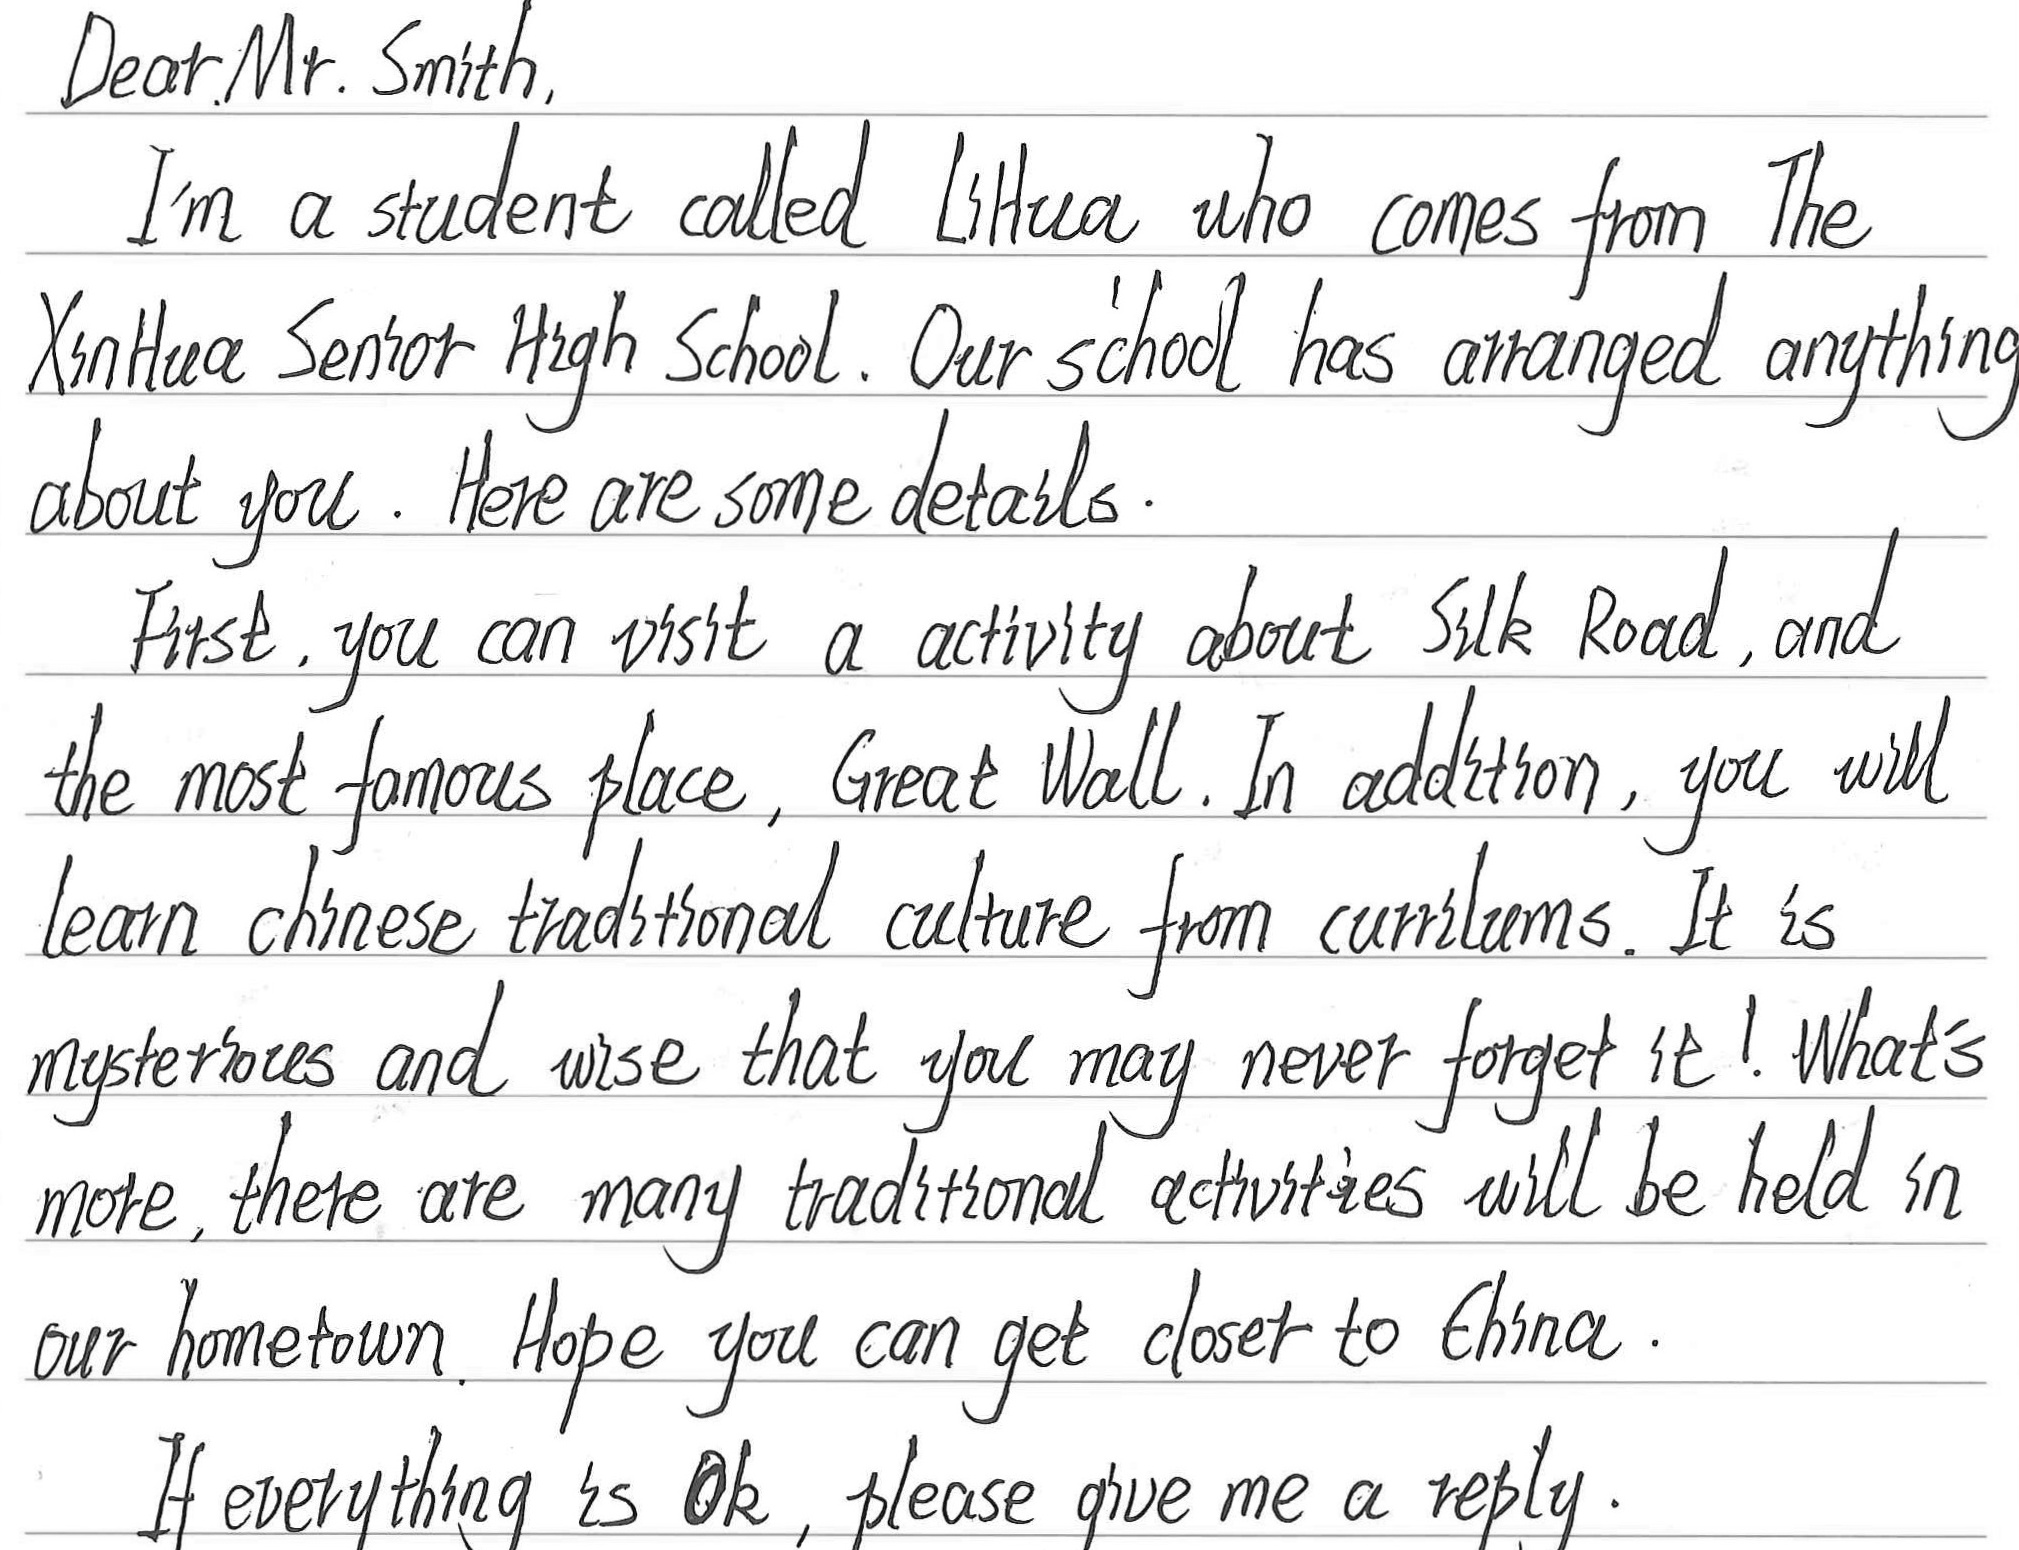 Dear Mr. Smith,
I'm a student called LiHua who comes from The
XinHua Senior High School. Our school has arranged anything
about you. Here are some details.
First, you can visit a activity about Silk Road, and
the most famous place, Great Wall. In addition, you will
learn chinese traditional culture from currilums. It is
mysterious and wise that you may never forget it! What's
more, there are many traditional activities will be held in
our hometown. Hope you can get closer to China.
If everything is Ok, please give me a reply.